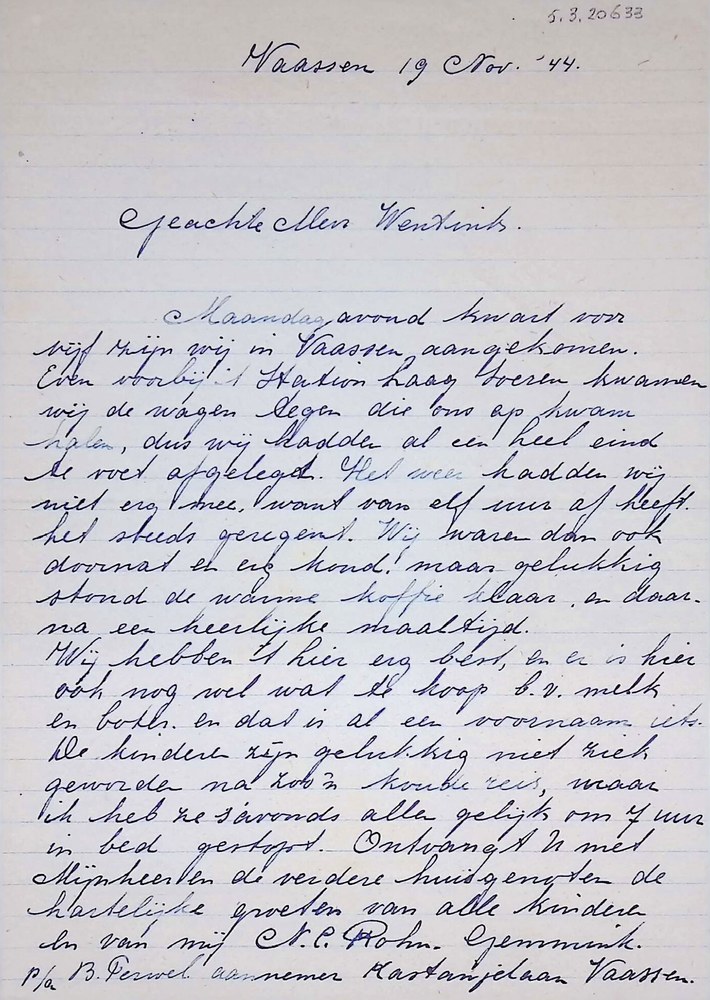 5.3.20633
Vaassen 19 Nov. '44.
Geachte Mevr Wentink.
Maandag avond kwart voor
vijf zijn wij in Vaassen aangekomen.
Even voorbij 't Station haag Soeren kwamen
wij de wagen tegen die ons op kwam
halen, dus wij hadden al een heel eind
te voet afgelegd. Het weer hadden wij
niet erg mee, want van elf uur af heeft
het steeds geregent. Wij waren dan ook
doornat en erg koud! maar gelukkig
stond de warme koffie klaar, en daar-
na een heerlijke maaltijd.
Wij hebben 't hier erg best, en er is hier
ook nog wel wat te koop b.v. melk
en boter. en dat is al een voornaam iets.
De kindere zijn gelukkig niet ziek
geworden na zoo'n koude reis, maar
ik heb ze s'avonds alle gelijk om 7 uur
in bed gestopt. Ontvangt U met
Mijnheer en de verdere huisgenoten de
hartelijke groeten van alle kindere
En van mij N.C. Rohn. Gemmink.
p/a B. Terwel aannemer Kastanjelaan Vaassen.